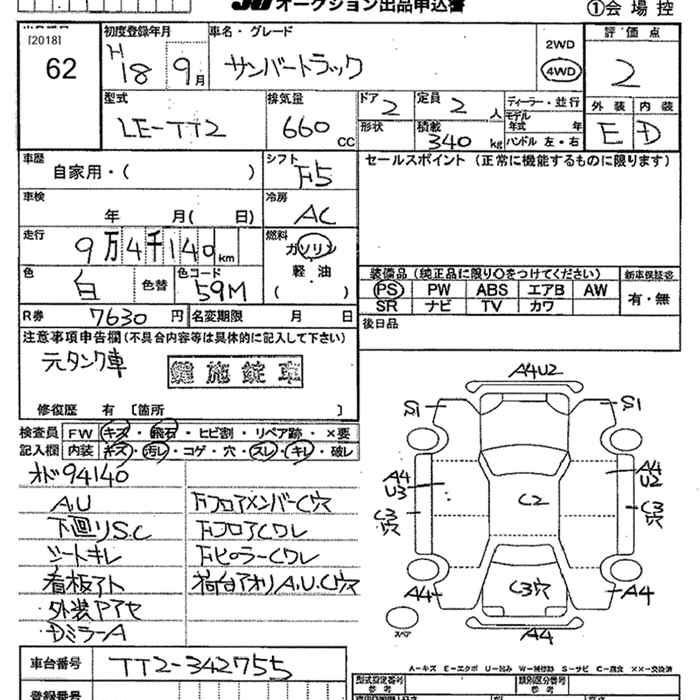 JU オークション出品申込書
①会場控
[2018]
62
初度登録年月
H18 9月
車名・グレード
サンバートラック
2WD
4WD
評価点
2
外装 内装
E D
型式
LE-TT2
排気量
660 CC
ドア 2
形状
定員 2 人
積載 340 kg
ディーラー・並行
モデル年式 年
ハンドル 左・右
車歴
自家用・( )
シフト
F5
セールスポイント (正常に機能するものに限ります)
車検
年 月( 日)
冷房
AC
走行
9万4千140km
燃料
ガソリン
軽・油
( )
色
白
色替
色コード
59M
装備品 (純正品に限り○をつけてください)
新車保証書
PS PW ABS エアB AW
SR ナビ TV カワ
有・無
R券 7630円
名変期限 月 日
後日品
注意事項申告欄(不具合内容等は具体的に記入して下さい)
元タンク車
鍵施錠車
修復歴 有 〔箇所 〕
検査員記入欄
FW キズ・飛石・ヒビ割・リペア跡・×要
内装 キズ・汚レ・コゲ・穴・スレ・キレ・破レ
オド94140
A.U
下廻りS.C
シートキレ
看板アト
外装アアセ
DミラーA
FフロアメンバーC穴
FフロアCワレ
FピラーCワレ
荷台アオリA.U.C穴
A4U2
S1 S1
A4 U3
A4 U2
C3穴
C2
C3穴
A4
C3穴
A4
A4
スペア
A-キズ E-エクボ U-凹み W-補修跡 S-サビ C-腐食 ××-交換済
車台番号
TT2-342755
登録番号
型式指定番号
参考
類別区分番号
参考